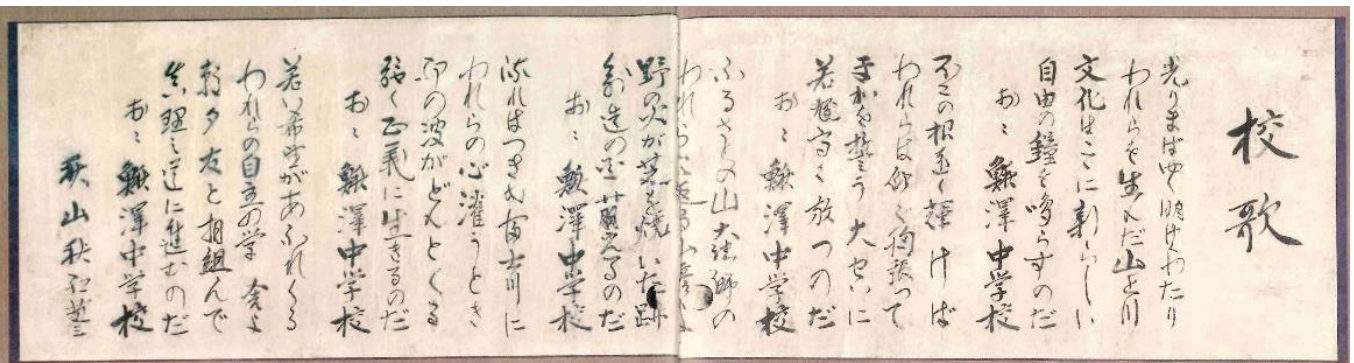 校歌
光りまばゆく明けわたり
われらを生んだ山と川
文化はここに新らしい
自由の鐘を鳴らすのだ
おゝ 鰍澤中学校
不二の根遠く輝けば
われらは仰ぐ胸張って
大せいに
高く放つのだ
おゝ 鰍澤中学校
ふるさとの山大法師の
われら
野の火が芝を焼いた跡
創造の萠えるのだ
おゝ 鰍澤中学校
流れはつきぬ富士川に
われらの心濯うとき
の波がどんとくる
強く正義に生きるのだ
おゝ 鰍澤中学校
若い希望があふれくる
われらの自主の学舎よ
朝夕友と相組んで
真理の道に進むのだ
おゝ 鰍澤中学校
秋山秋紅蓼